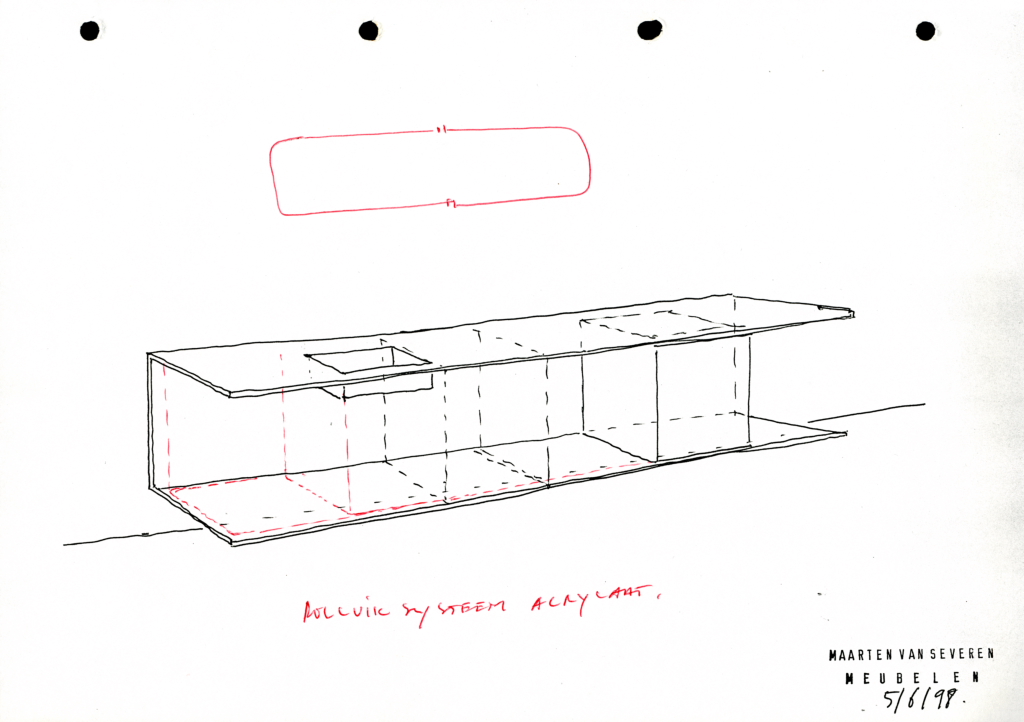 ROLLUIK SYSTEEM ACRYLAAT.
MAARTEN VAN SEVEREN
MEUBELEN
5/6/98.